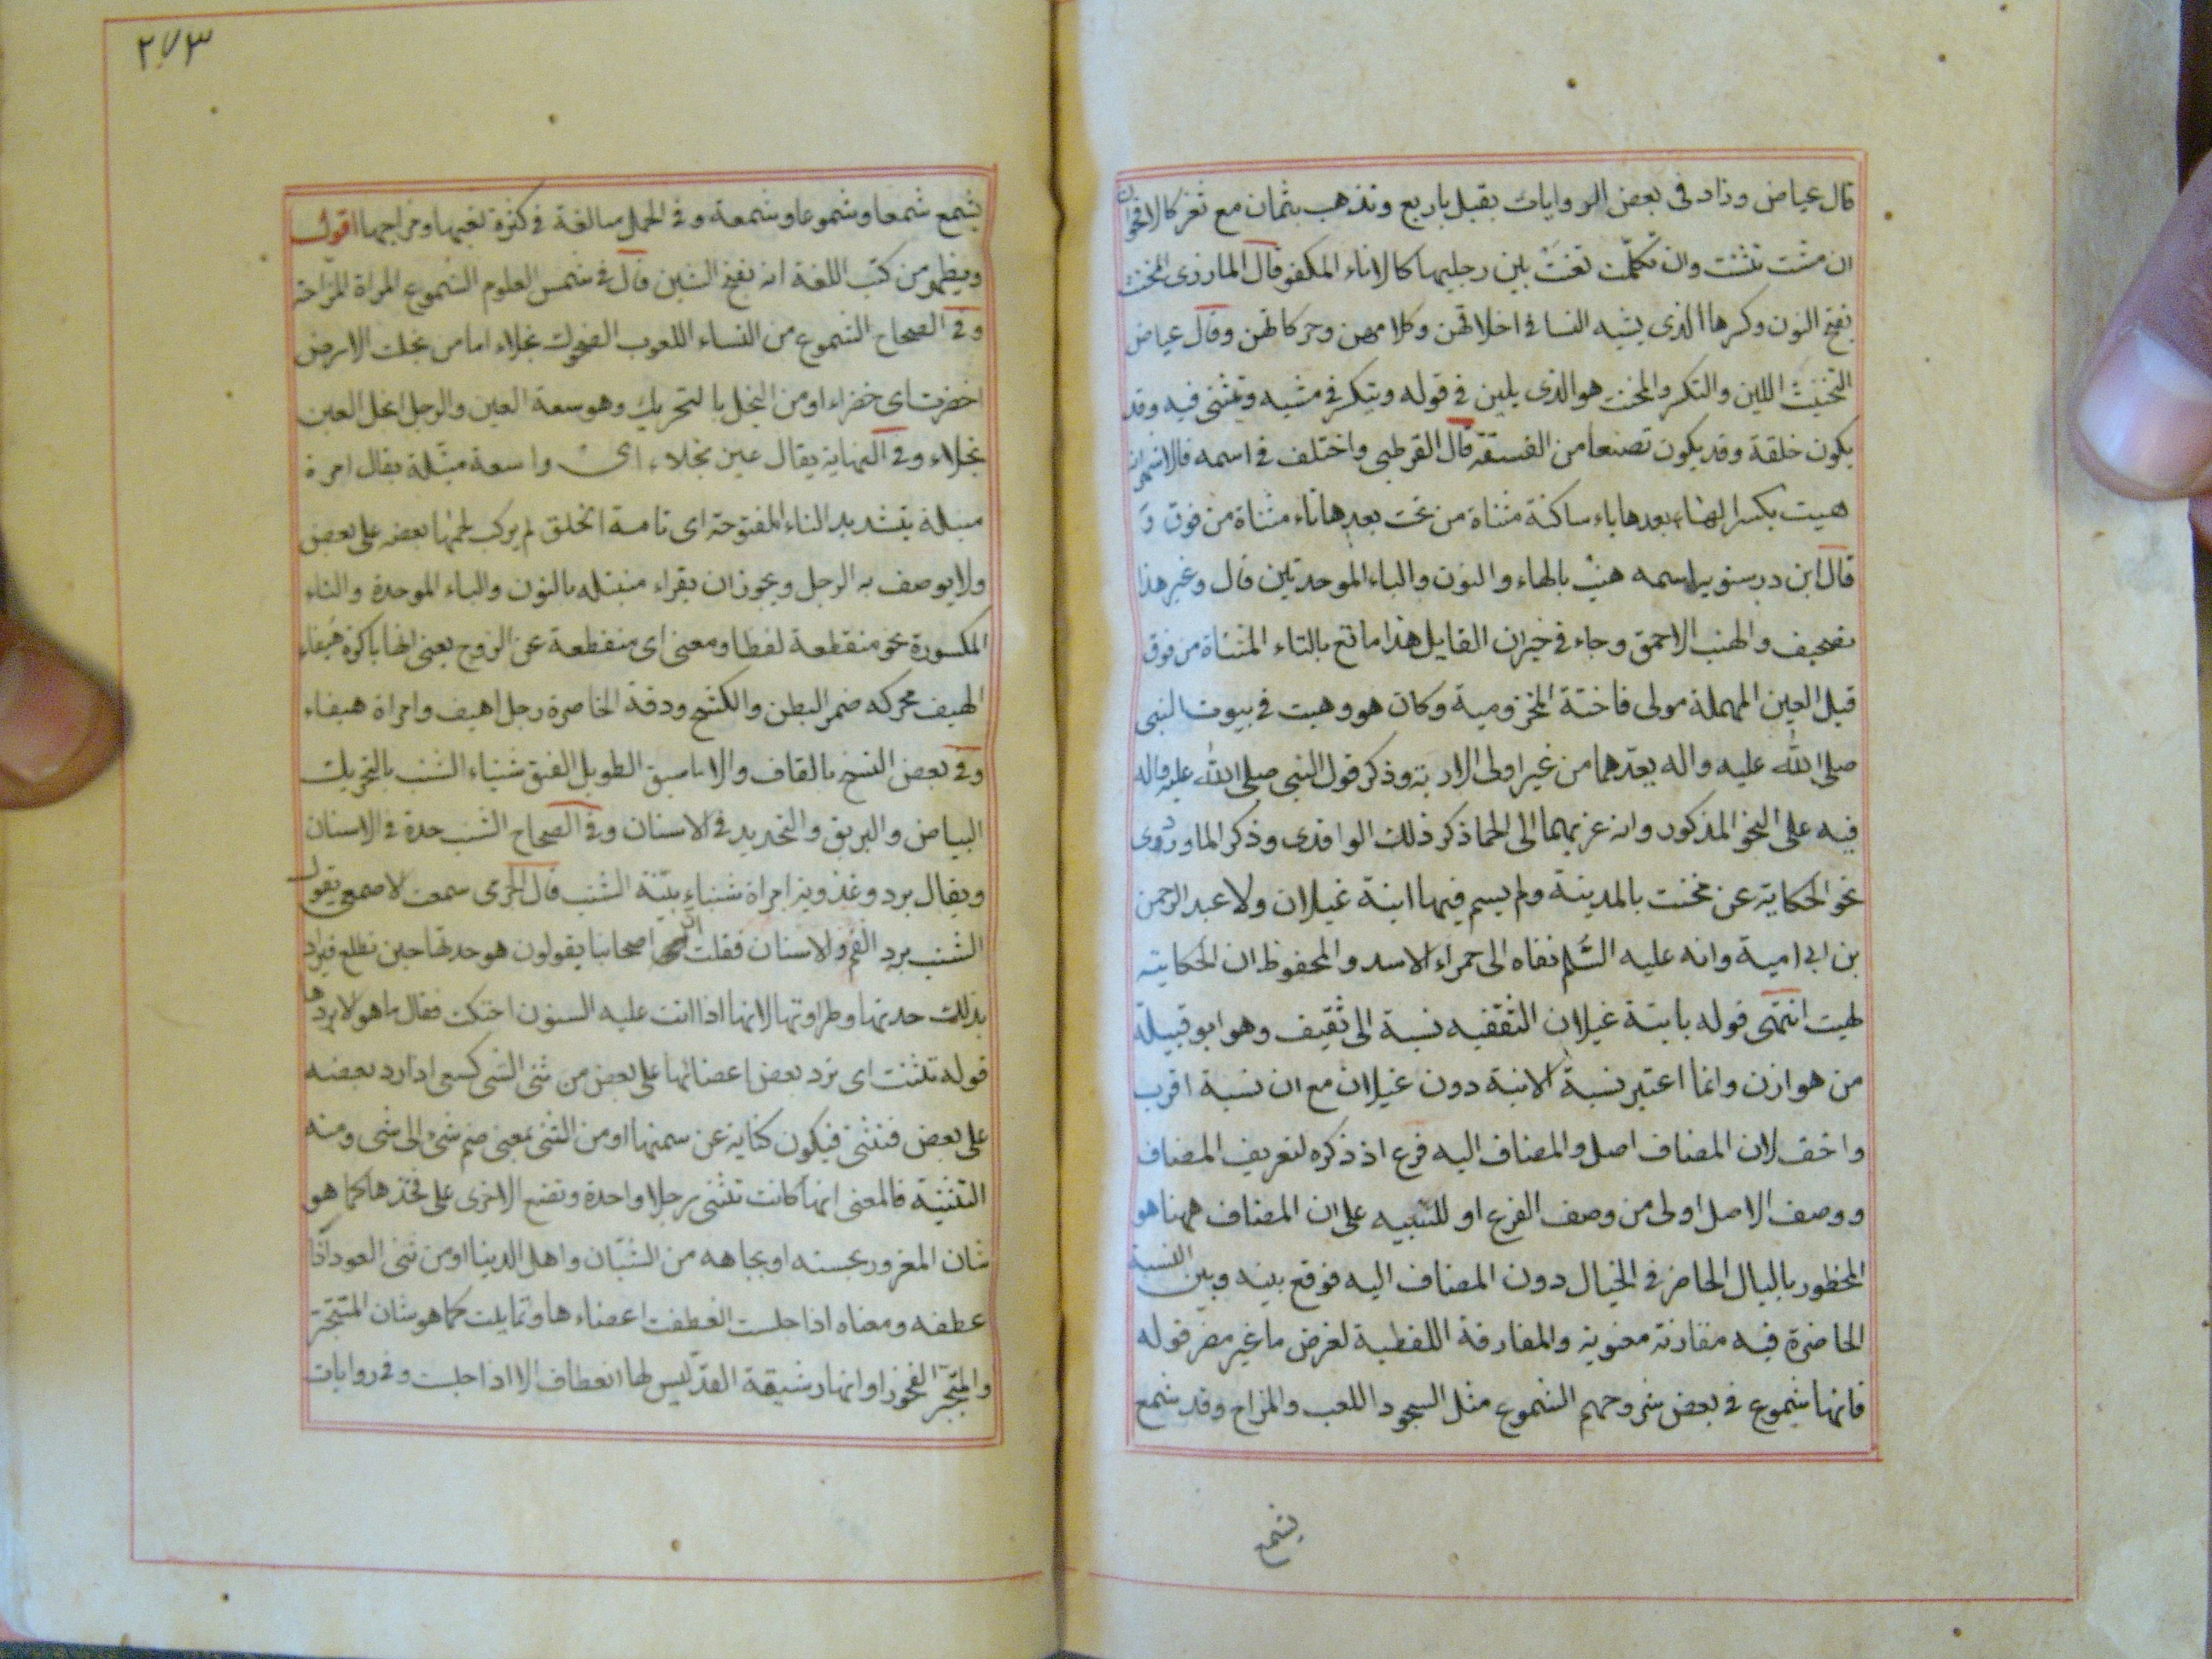 قال عياض وزاد فى بعض الروايات يقبل باربع وتذهب بثمان مع ثغر كالاقحوان
ان مشت تثنت وان تكلّمت تغنت بين رجليها كالاناء المكفو قال المازرى المخنث
بفتح النون وكسرها الذى يشبه النسا فى اخلاقهن وكلامهن وحركاتهن وقال عياض
التخنيث اللين والتكسر والمخنث هو الذى يلين فى قوله ويتكسر فى مشيه ويتثنى فيه وقد
يكون خلقة وقد يكون تصنعا من الفسقة قال القرطبى واختلف فى اسمه فالاشهر انه
هيت بكسر الهاء بعدها ياء ساكنة مثناة من تحت بعدها تاء مثناة من فوق و
قال ابن درستويه اسمه هنب بالهاء والنون والباء الموحدتين قال وغير هذا
تصحيف والهنب الاحمق وجاء فى خبر ان القايل هذا ماتع بالتاء المثناة من فوق
قبل العين المهملة مولى فاختة المخزومية وكان هو وهيت فى بيوت النبى
صلى الله عليه واله يعدّهما من غير اولى الاربة وذكر قول النبى صلى الله عليه واله
فيه على النحو المذكور وانه غربهما الى الحما ذكر ذلك الواقدى وذكر الماوردى
نحو الحكاية عن مخنث بالمدينة ولم يسم فيها ابنة غيلان ولا عبد الرحمن
بن ابى امية وانه عليه السّلم نفاه الى حمراء الاسد والمحفوظ ان الحكاية
لهيت انتهى قوله بابنة غيلان الثقفيه نسبة الى ثقيف وهو ابو قبيلة
من هوازن وانما اعتبر نسبة الابنة دون غيلان مع ان نسبة اقرب
واخف لان المضاف اصل والمضاف اليه فرع اذ ذكره لتعريف المضاف
ووصف الاصل اولى من وصف الفرع او للتنبيه على ان المضاف ههنا هو
المخطور بالبال الحاضر فى الخيال دون المضاف اليه فوقع بينه وبين النسبة
الحاضرة فيه مقارنة معنوية والمفارقة اللفظية لغرض ما غير مضر قوله
فانها شموع فى بعض شروحهم الشموع مثل السجود اللعب والمزاح وقد شمع
يشمع
٢٧٣
يشمع شمعا وشموعا وشمعة وفى الحمل مبالغة فى كثرة لعبها ومزاجها اقول
ويظهر من كتب اللغة انه بفتح الشين قال فى شمس العلوم الشموع المراة المزاحة
وفى الصحاح الشموع من النساء اللعوب الضحوك نجلاء اما من نجلت الارض
اخضرت اى خضراء او من النجل بالتحريك وهو سعة العين والرجل انجل العين
نجلاء وفى النهاية يقال عين نجلاء اى واسعة مبتلة يقال امرة
مبتلة بتشديد التاء المفتوحة اى تامة الخلق لم يركب لحمها بعضه على بعض
ولا يوصف به الرجل ويجوز ان يقراء منبتله بالنون والباء الموحدة والتاء
المكسورة نحو منقطعة لفظا ومعنى اى منقطعة عن الزوج يعنى انها باكرة هيفاء
الهيف محركه ضمر البطن والكشح ودقة الخاصرة رجل اهيف وامراة هيفاء
وفى بعض النسخ بالقاف والاسبق الطويل العنق شنباء الشنب بالتحريك
البياض والبريق والتحديد فى الاسنان وفى الصحاح الشنب حدة فى الاسنان
ويقال برد وعذوبة امراة شنباء بيّنة الشنب قال الجرمى سمعت الاصمعى يقول
الشنب برد الفم والاسنان فقلت ان اصحابنا يقولون هو حدتها حين تطلع فيراد
بذلك حدتها وطراوتها لانها اذا اتت عليه السنون احتكت فقال ما هو الا بردها
قوله تثنت اى ترد بعض اعضائها على بعض من ثنى الشى كسعى اذا رد بعضه
على بعض فتثنى فيكون كناية عن سمنها او من الثنى بمعنى ضم شئ الى شى ومنه
التثنية فالمعنى انها كانت تثنى رجلا واحدة وتضع الاخرى على فخذها كما هو
شان المغرور بحسنه او بجاهه من الشبّان واهل الدينا او من ثنى العود اذا
عطفه ومعناه اذا جلست انعطفت اعضاءها وتمايلت كما هو شان المتبختر
والمتجبر الفخور او انها رشيقة القدّ ليس لها انعطاف الا اذا جلست وفى روايات